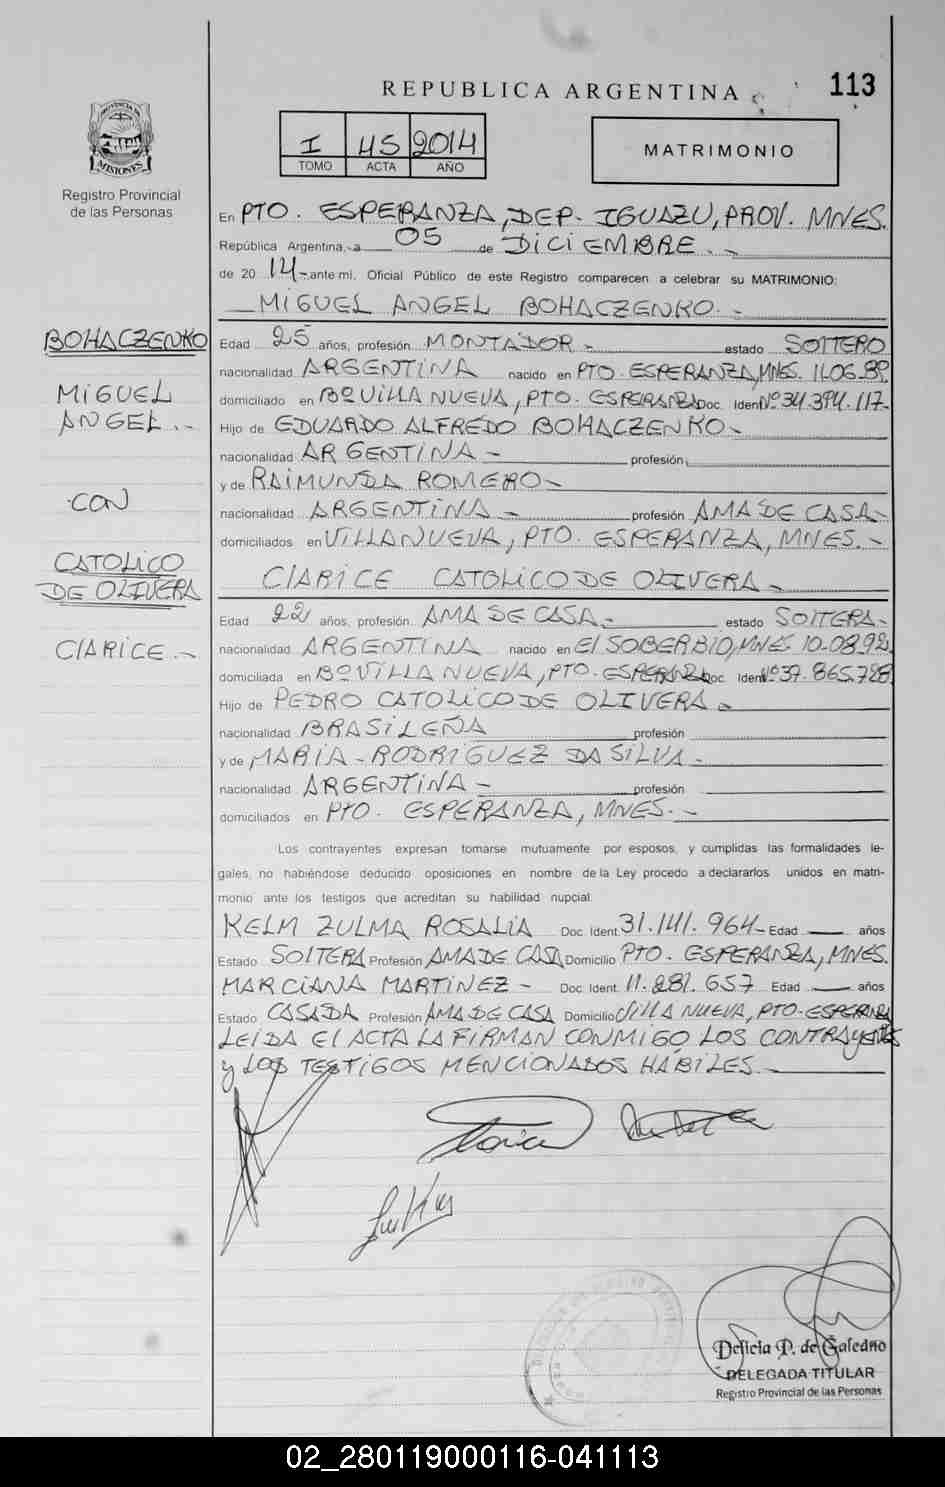 REPUBLICA ARGENTINA
113
PROVINCIA DE
MISIONES
Registro Provincial
de las Personas
I 45 2014
TOMO ACTA AÑO
MATRIMONIO
En PTO. ESPERANZA, DEP. IGUAZU, PROV. MNES.
República Argentina, a 05 de DICIEMBRE.-
de 20 14- ante mi. Oficial Público de este Registro comparecen a celebrar su MATRIMONIO:
MIGUEL ANGEL BOHACZENKO.-
BOHACZENKO
MIGUEL
ANGEL.-
CON
CATOLICO
DE OLIVERA
CLARICE.-
Edad 25 años, profesión MONTADOR- estado SOLTERO
nacionalidad ARGENTINA nacido en PTO. ESPERANZA, MNES. 11.06.89.
domiciliado en Bº VILLA NUEVA, PTO. ESPERANZA Doc. Ident Nº 34.394.117-
Hijo de EDUARDO ALFREDO BOHACZENKO-
nacionalidad ARGENTINA- profesión
y de RAIMUNDA ROMERO-
nacionalidad ARGENTINA- profesión AMA DE CASA-
domiciliados en VILLA NUEVA, PTO. ESPERANZA, MNES.-
CLARICE CATOLICO DE OLIVERA-
Edad 22 años, profesión AMA DE CASA.- estado SOLTERA-
nacionalidad ARGENTINA nacido en El SOBERBIO, MNES. 10.08.92.
domiciliada en Bº VILLA NUEVA, PTO. ESPERANZA Doc. Ident Nº 37.865.728
Hijo de PEDRO CATOLICO DE OLIVERA-
nacionalidad BRASILEÑA profesión
y de MARIA-RODRIGUEZ DA SILVA-
nacionalidad ARGENTINA- profesión
domiciliados en PTO. ESPERANZA, MNES.-
Los contrayentes expresan tomarse mutuamente por esposos, y cumplidas las formalidades le-
gales, no habiéndose deducido oposiciones en nombre de la Ley procedo a declararlos unidos en matri-
monio ante los testigos que acreditan su habilidad nupcial.
KELM ZULMA ROSALIA Doc. Ident. 31.141.964- Edad — años
Estado SOLTERA Profesión AMA DE CASA Domicilio PTO. ESPERANZA, MNES.
MARCIANA MARTINEZ- Doc. Ident. 11.281.657 Edad — años
Estado CASADA Profesión AMA DE CASA Domicilio VILLA NUEVA, PTO. ESPERANZA
LEIDA El ACTA LA FIRMAN CONMIGO LOS CONTRAYENTES
y LOS TESTIGOS MENCIONADOS HABILES.-
Delicia P. de Galeano
DELEGADA TITULAR
Registro Provincial de las Personas
02_280119000116-041113